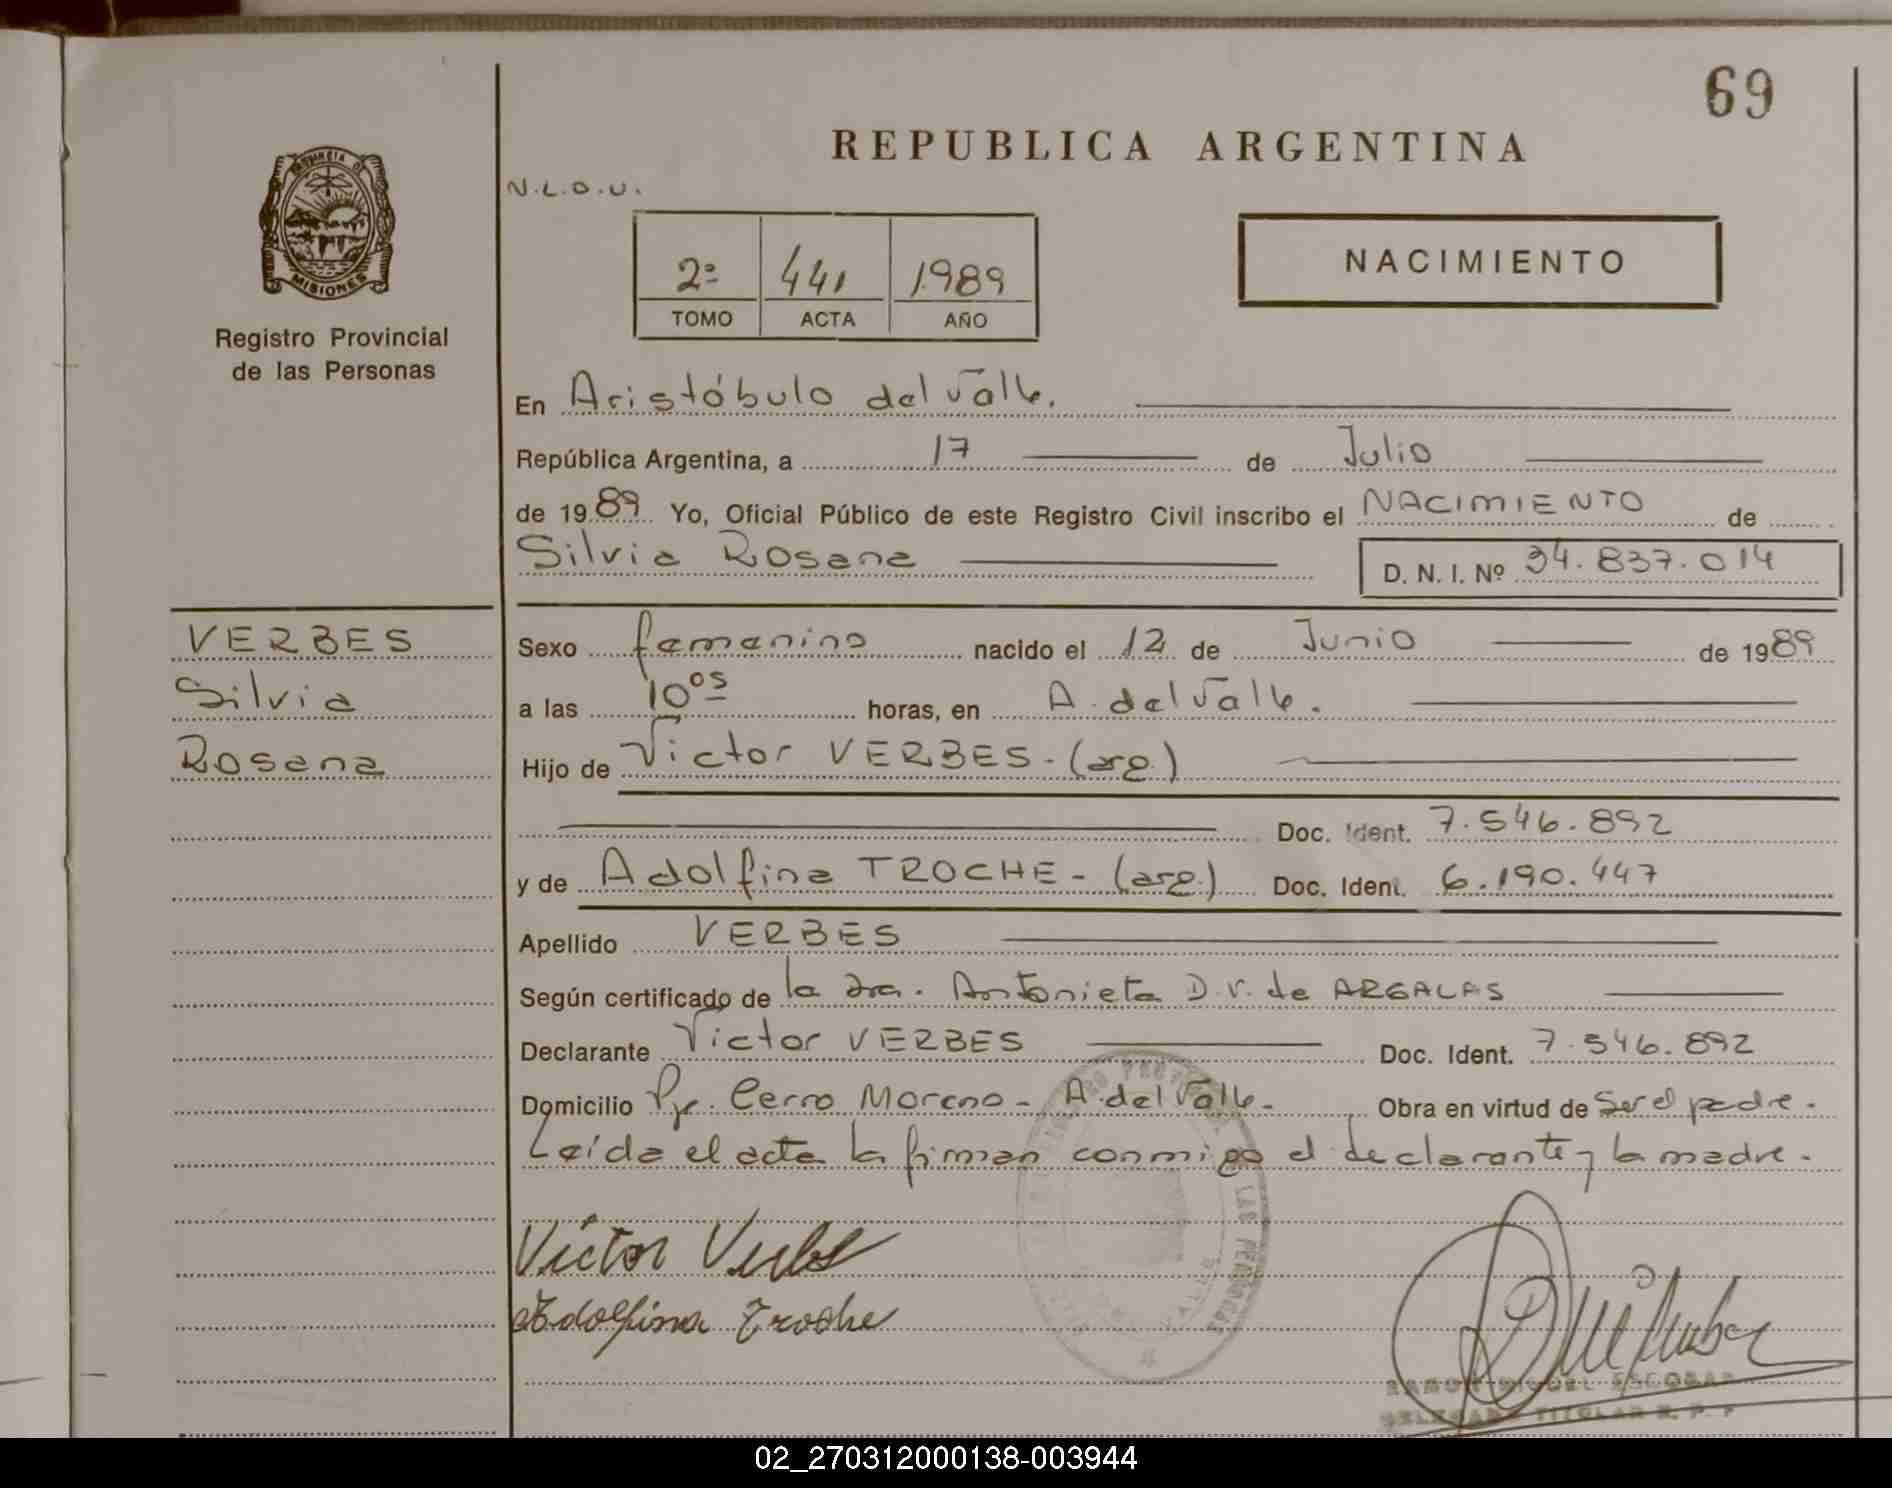 69
REPUBLICA ARGENTINA
N.L.O.U.
PROVINCIA DE
MISIONES
Registro Provincial
de las Personas
2º 441 1989
TOMO ACTA AÑO
NACIMIENTO
En Aristóbulo del Valle.
República Argentina, a 17 de Julio
de 1989 Yo, Oficial Público de este Registro Civil inscribo el NACIMIENTO de
Silvia Rosana D. N. I. Nº 34.837.014
VERBES
Silvia
Rosana
Sexo femenino nacido el 12 de Junio de 1989
a las 10º⁵ horas, en A. del Valle.
Hijo de Victor VERBES - (arg.)
Doc. Ident. 7.546.892
y de Adolfina TROCHE - (arg.) Doc. Ident. 6.190.447
Apellido VERBES
Según certificado de la Dra. Antonieta D.V. de ARGALAS
Declarante Victor VERBES Doc. Ident. 7.546.892
Domicilio Pje. Cerro Moreno - A. del Valle - Obra en virtud de Ser el padre.
Leída el acta la firman conmigo el declarante y la madre.
Victor Verbes
Adolfina Troche
RAMON MIGUEL ESCOBAR
DELEGADO TITULAR R. P. P.
02_270312000138-003944